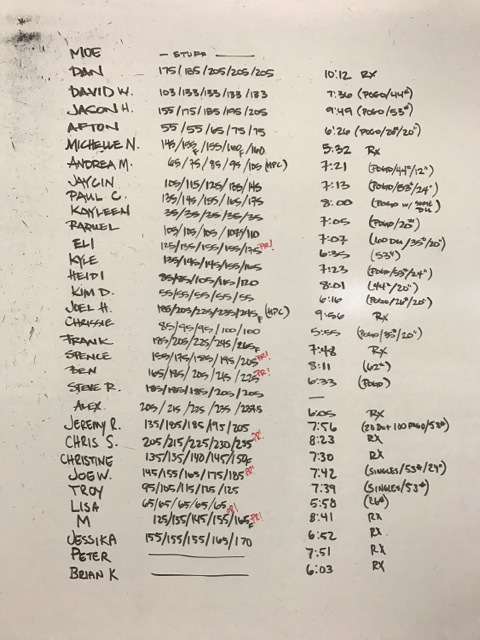 MOE — STUFF —
DAN 175/185/205/205/205 10:12 RX
DAVID W. 103/133/133/133/133 7:36 (POGO/44#)
JASON H. 155/175/185/195/205 9:49 (POGO/53#)
AFTON 55/55/65/75/75 6:26 (POGO/26#/20")
MICHELLE N. 5:32 RX
ANDREA M. 65/75/85/95/105 (HPC) 7:21 (POGO/44#/12")
JAYCIN 105/115/125/135/145 7:13 (POGO/53#/24")
PAUL C. 135/145/155/165/175 8:00 (POGO W/ SOME DU)
KAYLEEN 35/35/35/35/35 7:05 (POGO/20#)
RAQUEL 105/105/105/107/110 7:07 (100 DU/35#/20")
ELI 125/135/155/155/175 PR! 6:35 (53#)
KYLE 135/145/145/155/165 7:23 (POGO/53#/24")
HEIDI 85/85/105/115/120 8:01 (44#/20")
KIM D. 55/55/55/55/55 6:16 (POGO/26#/20")
JOEL H. 185/205/225/235/245F (HPC) 9:56 RX
CHRISSIE 85/95/95/100/100 5:55 (POGO/35#/20")
FRANK 185/205/225/245/265F 7:48 RX
SPENCE 155/175/185/195/205 PR! 8:11 (62#)
BEN 165/185/205/215/225 PR! 6:33 (POGO)
STEVE R. 185/185/185/205/205 —
ALEX 205/215/225/235/ 6:05 RX
JEREMY R. 135/185/185/95/205 7:56 (20 DU + 100 POGO/53#)
CHRIS S. 205/215/225/230/235 PR! 8:23 RX
CHRISTINE 135/135/140/145/150F 7:30 RX
JOE W. 145/155/165/175/185 PR! 7:42 (SINGLES/53#/24")
TROY 95/105/115/125/125 7:39 (SINGLES/53#)
LISA 65/65/65/65/65 5:50 (26#)
M 125/135/145/155/165F PR! 8:41 RX
JESSIKA 155/155/155/165/170 PR! 6:52 RX
PETER ——— 7:51 RX
BRIAN K ——— 6:03 RX